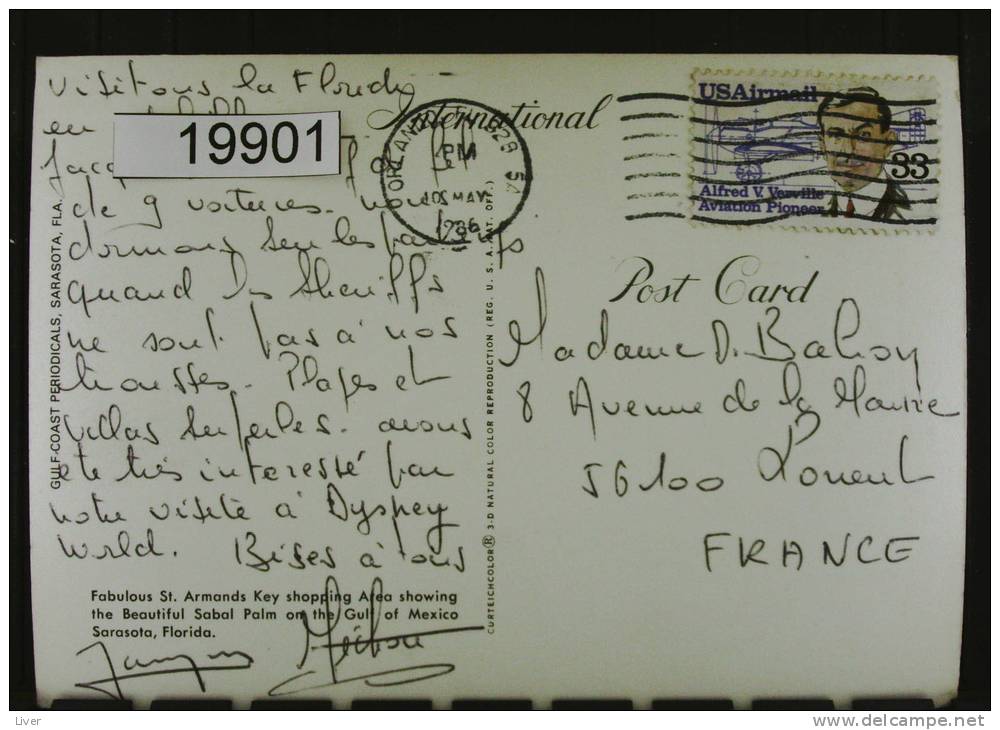 Visitons la Floride
en
19901
de 9 voitures. nous
dormons sur les parkings
quand Des Sheriffs
ne sont pas à nos
trousses. Plages et
villas superbes. avons
ete très interessé par
notre visite à Dysney
World. Bises à tous
Fabulous St. Armands Key shopping Area showing
the Beautiful Sabal Palm on the Gulf of Mexico
Sarasota, Florida.
Jacques
GULF-COAST PERIODICALS, SARASOTA, FLA.
CURTEICHCOLOR® 3-D NATURAL COLOR REPRODUCTION (REG. U. S. A. PAT. OFF.)
International
ORLANDO 328
PM
MAY
1986
USAirmail
33
Alfred V. Verville
Aviation Pioneer
Post Card
Madame D.
8 Avenue de la Marne
56100 Lorient
FRANCE
Liver
delcampe.net